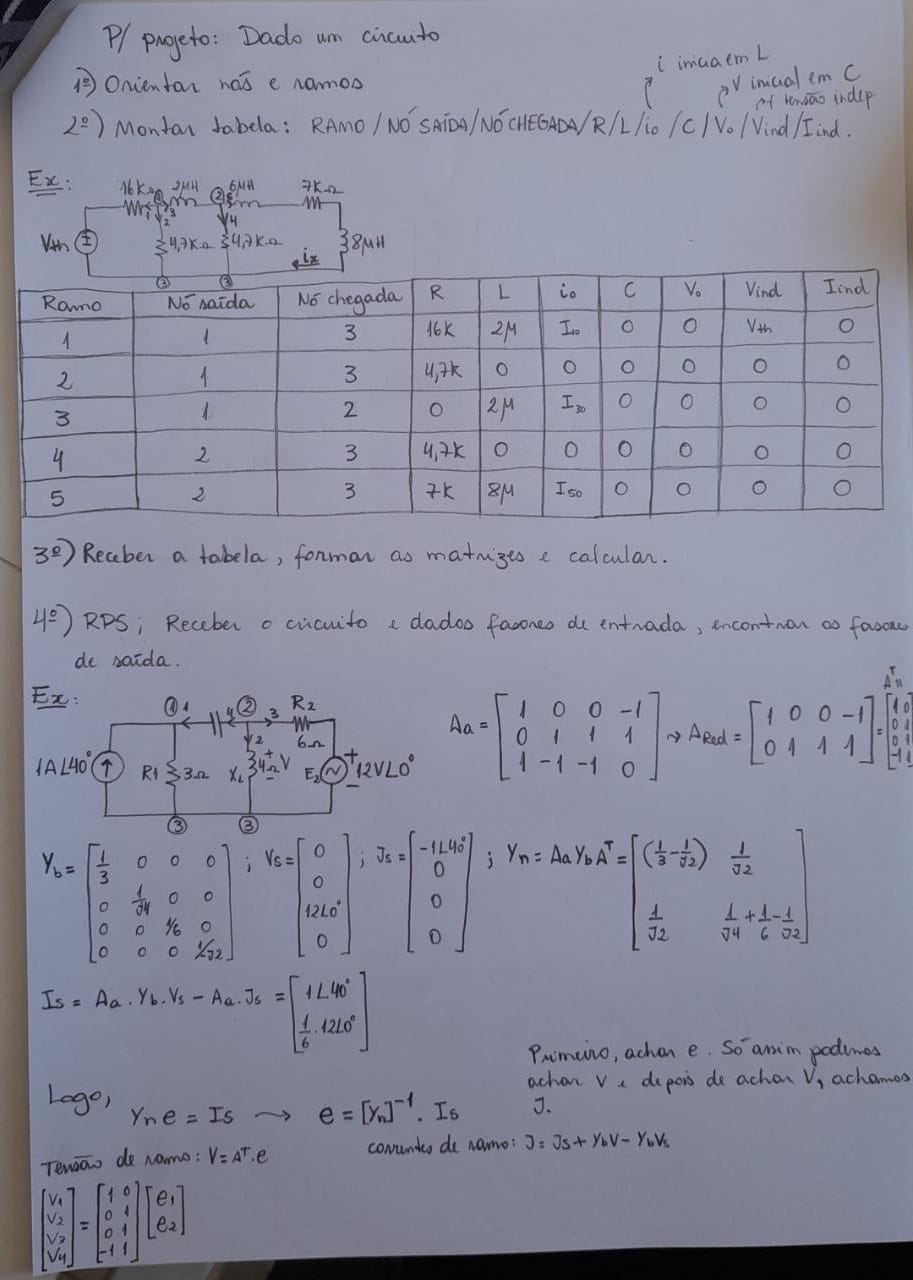 P/ projeto: Dado um circuito
i inicia em L
1º) Orientar nós e ramos
V inicial em C
tensão indep.
2º) Montar tabela: RAMO / NÓ SAÍDA / NÓ CHEGADA / R / L / io / C / Vo / Vind / Iind.
Ex:
16KΩ 2MH 6MH 7KΩ
1 1 3 2 5
2 4
Vth 4,7KΩ 4,7KΩ ix 8MH
3 3
Ramo Nó saída Nó chegada R L io C Vo Vind Iind
1 1 3 16K 2M I10 0 0 Vth 0
2 1 3 4,7K 0 0 0 0 0 0
3 1 2 0 2M I30 0 0 0 0
4 2 3 4,7K 0 0 0 0 0 0
5 2 3 7K 8M I50 0 0 0 0
3º) Receber a tabela, formar as matrizes e calcular.
4º) RPS; Receber o circuito e dados fasores de entrada, encontrar os fasores
de saída.
Ex:
1 1 4 2 3 R2
2 6Ω
1A∠40° R1 3Ω XL 4Ω + V - E2 + 12V∠0° -
3 3
Aa = [1 0 0 -1; 0 1 1 1; 1 -1 -1 0] → ARed = [1 0 0 -1; 0 1 1 1] = AT [1 0; 0 1; 0 1; -1 1]
Yb = [1/3 0 0 0; 0 1/J4 0 0; 0 0 1/6 0; 0 0 0 1/J2]; Vs = [0; 0; 12∠0°; 0]; Js = [-1∠40°; 0; 0; 0]; Yn = Aa Yb AT = [(1/3 - 1/J2) 1/J2; 1/J2 1/J4 + 1/6 - 1/J2]
Is = Aa . Yb . Vs - Aa . Js = [1∠40°; 1/6 . 12∠0°]
Primeiro, achar e. Só assim podemos
achar V e depois de achar V, achamos
J.
Logo,
Yn e = Is → e = [Yn]-1 . Is
Tensão de ramo: V = AT . e
correntes de ramo: J = Js + YbV - YbVs
[V1; V2; V3; V4] = [1 0; 0 1; 0 1; -1 1] [e1; e2]